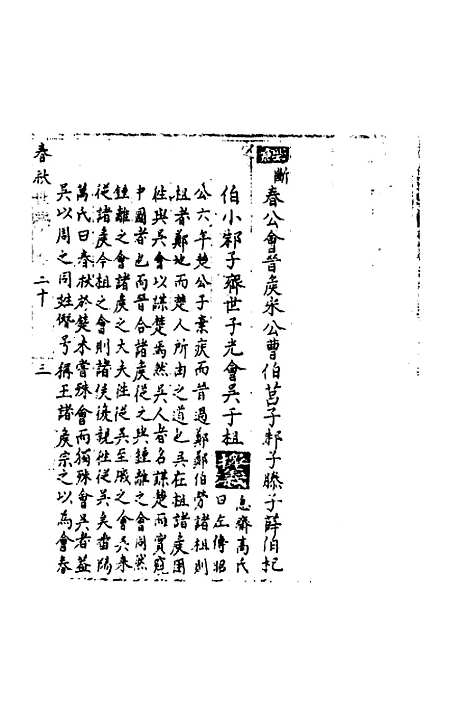 經斷
春公會晉矦宋公曹伯莒子邾子滕子薛伯杞
伯小邾子齊世子光會吳于柤
息齋高氏
曰左傳昭
公六年楚公子棄疾而晉過鄭鄭伯勞諸柤則
柤者鄭地而楚人所由之道也吳在柤諸矦因
徃與吳會以謀楚焉然吳人者名謀楚而實窺
中國者也而晉合諸矦從之與鍾離之會同然
鍾離之會諸矦之大夫徃從吳至戚之會吳來
從諸矦今柤之會則諸侯復親徃從吳矣番陽
萬氏曰春秋於楚未嘗殊會而獨殊會吳者葢
吳以周之同姓僣号稱王諸矦宗之以為會春
春秋 二十 三